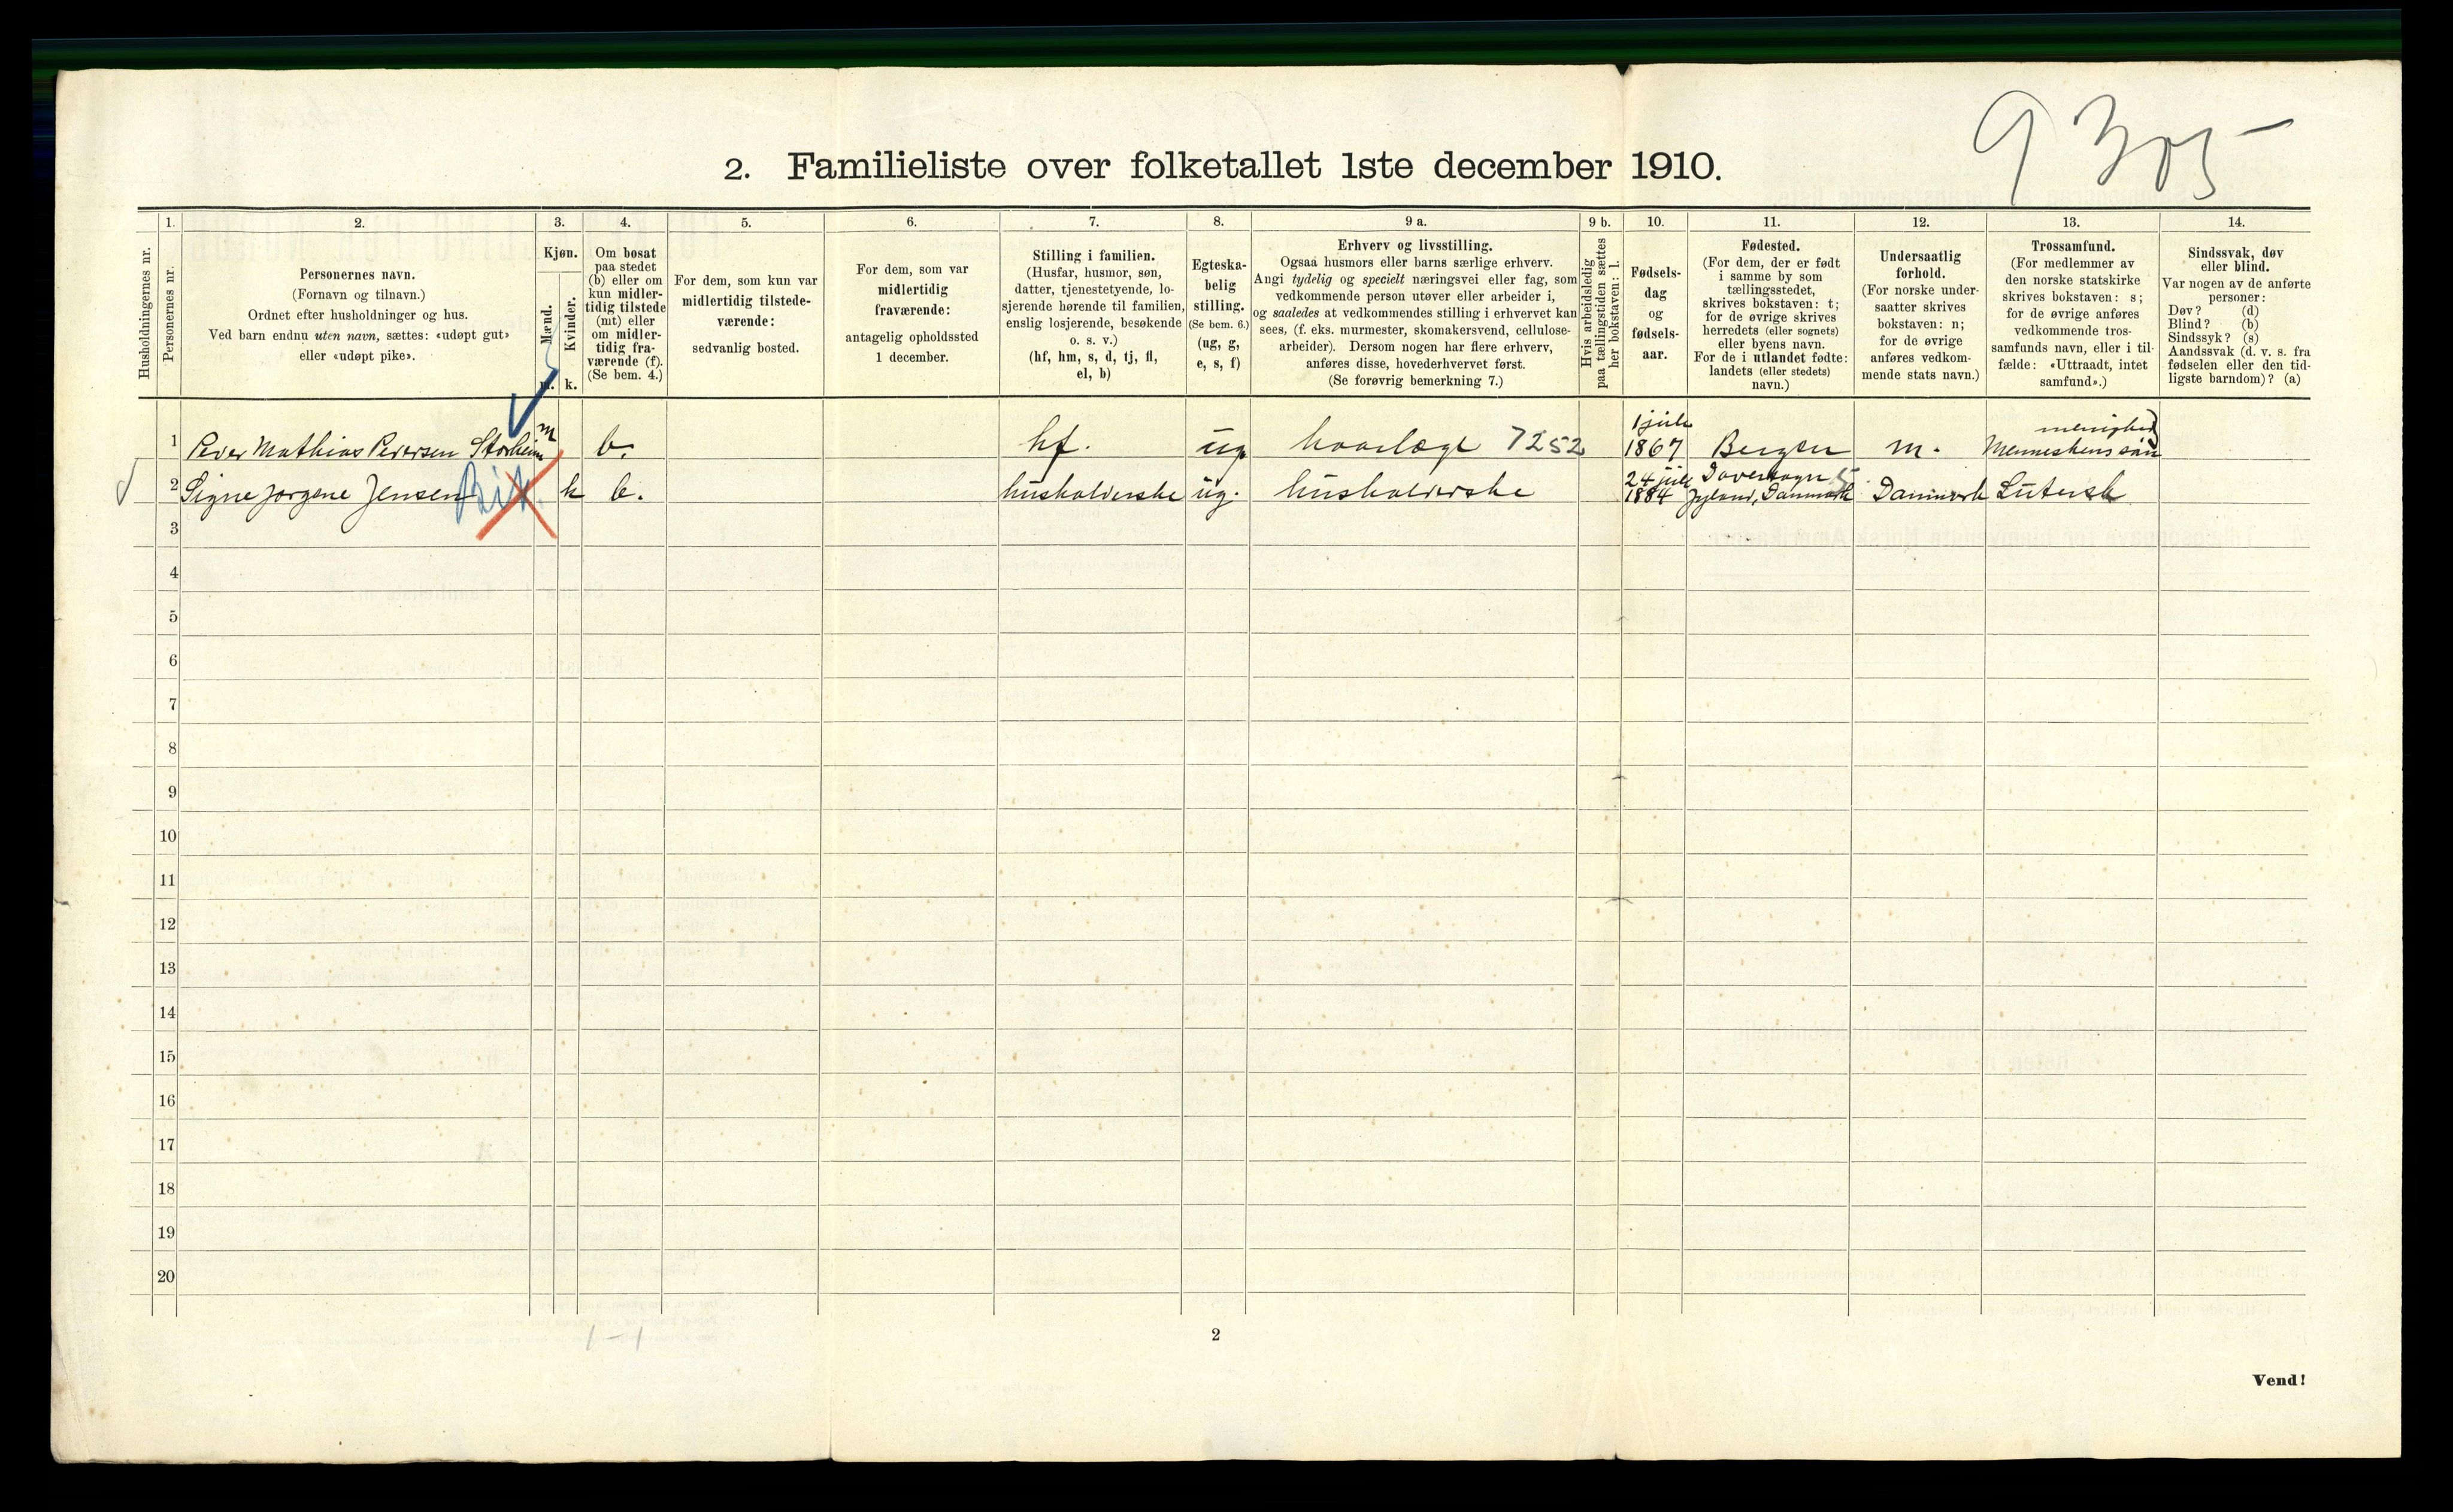 9 305 -
2. Familieliste over folketallet 1ste december 1910.
1. 2. 3. 4. 5. 6. 7. 8. 9 a. 9 b. 10. 11. 12. 13. 14.
Husholdningernes nr.
Personernes nr.
Personernes navn.
(Fornavn og tilnavn.)
Ordnet efter husholdninger og hus.
Ved barn endnu uten navn, sættes: «udøpt gut»
eller «udøpt pike».
Kjøn.
Mænd.
Kvinder.
m. k.
Om bosat
paa stedet
(b) eller om
kun midler-
tidig tilstede
(mt) eller
om midler-
tidig fra-
værende (f).
(Se bem. 4.)
For dem, som kun var
midlertidig tilstede-
værende:
sedvanlig bosted.
For dem, som var
midlertidig
fraværende:
antagelig opholdssted
1 december.
Stilling i familien.
(Husfar, husmor, søn,
datter, tjenestetyende, lo-
sjerende hørende til familien,
enslig losjerende, besøkende
o. s. v.)
(hf, hm, s, d, tj, fl,
el, b)
Egteska-
belig
stilling.
(Se bem. 6.)
(ug, g,
e, s, f)
Erhverv og livsstilling.
Ogsaa husmors eller barns særlige erhverv.
Angi tydelig og specielt næringsvei eller fag, som
vedkommende person utøver eller arbeider i,
og saaledes at vedkommendes stilling i erhvervet kan
sees, (f. eks. murmester, skomakersvend, cellulose-
arbeider). Dersom nogen har flere erhverv,
anføres disse, hovederhvervet først.
(Se forøvrig bemerkning 7.)
Hvis arbeidsledig
paa tællingstiden sættes
her bokstaven: l.
Fødsels-
dag
og
fødsels-
aar.
Fødested.
(For dem, der er født
i samme by som
tællingsstedet,
skrives bokstaven: t;
for de øvrige skrives
herredets (eller sognets)
eller byens navn.
For de i utlandet fødte:
landets (eller stedets)
navn.)
Undersaatlig
forhold.
(For norske under-
saatter skrives
bokstaven: n;
for de øvrige
anføres vedkom-
mende stats navn.)
Trossamfund.
(For medlemmer av
den norske statskirke
skrives bokstaven: s;
for de øvrige anføres
vedkommende tros-
samfunds navn, eller i til-
fælde: «Uttraadt, intet
samfund».)
Sindssvak, døv
eller blind.
Var nogen av de anførte
personer:
Døv? (d)
Blind? (b)
Sindssyk? (s)
Aandssvak (d. v. s. fra
fødselen eller den tid-
ligste barndom)? (a)
1 Peder Mathias Pedersen Storheim m b. hf. ug haarlæge 7252 1 juli 1867 Bergen n. Menneskens søn menighed
2 Signe Jørgene Jensen k b. husholderske ug. husholderske 24 juli 1884 Jyland, Danmark Danmark Lutersk
3
4
5
6
7
8
9
10
11
12
13
14
15
16
17
18
19
20
1 - 1
2
Vend!